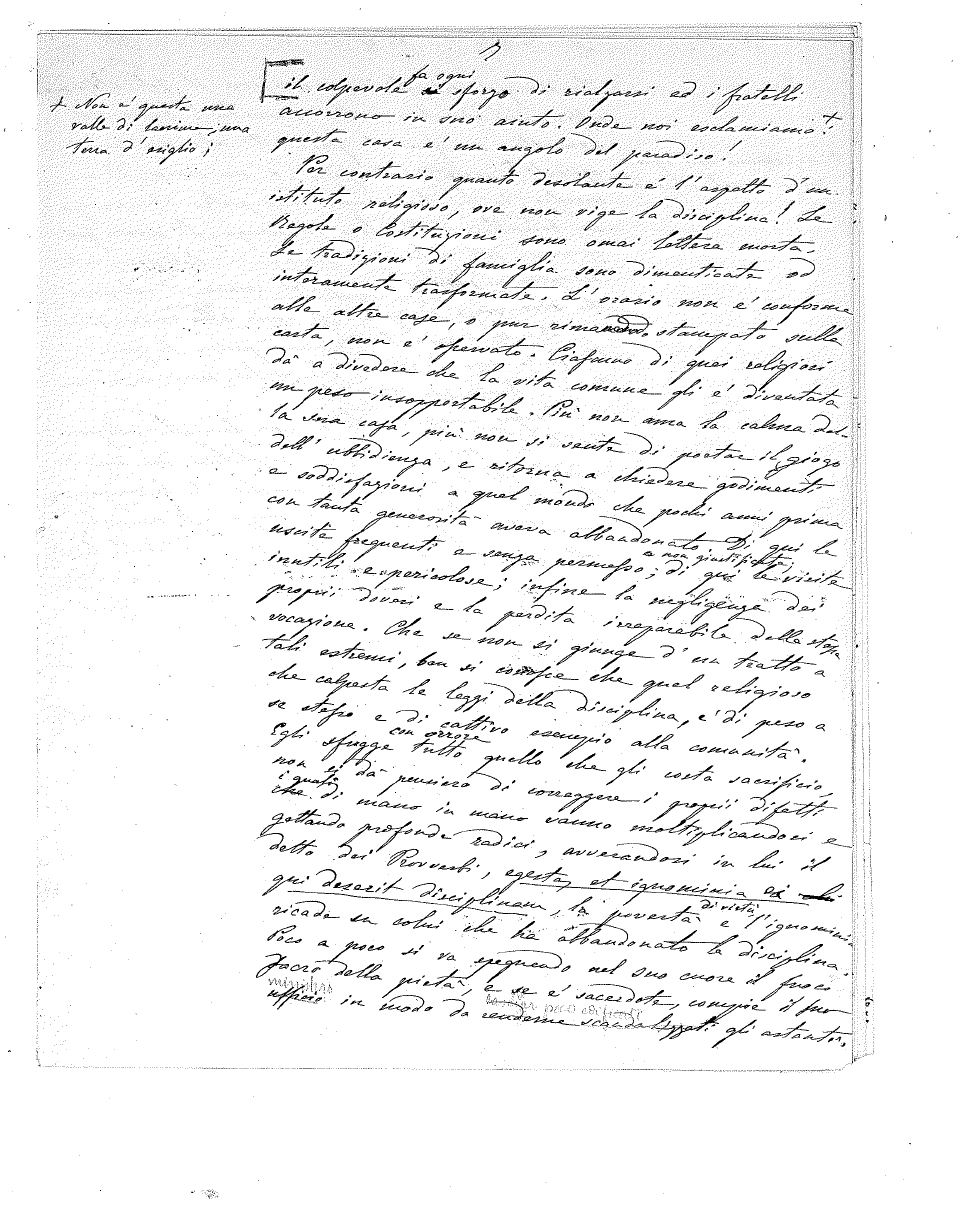 7
fa ogni
il colpevole si sforzo di rialzarsi ed i fratelli
accorrono in suo aiuto. Onde noi esclamiamo: +
+ Non è questa una
valle di lacrime, una
terra d'esiglio;
questa casa è un angolo del paradiso!
Per contrario quanto desolante è l'aspetto d'un
istituto religioso, ove non vige la disciplina! Le
Regole o Costituzioni sono omai lettera morta.
Le tradizioni di famiglia sono dimenticate od
interamente trasformate. L'orario non è conforme
alle altre case, o pur rimanendo stampato sulla
carta, non è osservato. Ciascuno di quei religiosi
dà a divedere che la vita comune gli è diventata
un peso insopportabile. Più non ama la calma del-
la sua casa, più non si sente di portar il giogo
dell'ubbidienza, e ritorna a chiedere godimenti
e soddisfazioni a quel mondo che pochi anni prima
con tanta generosità aveva abbandonato. Di qui le
uscite frequenti e senza permesso; di qui le visite
e non giustificate;
inutili e pericolose; infine la negligenza dei
proprii doveri e la perdita irreparabile della stessa
vocazione. Che se non si giunge d'un tratto a
tali estremi, ben si conosce che quel religioso
che calpesta le leggi della disciplina, è di peso a
se stesso e di cattivo esempio alla comunità.
con orrore
Egli sfugge tutto quello che gli costa sacrificio,
non si dà pensiero di correggere i proprii difetti
i quali
che di mano in mano vanno moltiplicandosi e
gettando profonde radici, avverandosi in lui il
detto dei Proverbi, egestas et ignominia ei
qui deserit disciplinam, la povertà e l'ignominia
di virtù
ricade su colui che ha abbandonato la disciplina.
Poco a poco si va spegnendo nel suo cuore il fuoco
sacro della pietà, e se è sacerdote, compie il suo
ministero
poco edificati
ufficio in modo da renderne scandalizzati gli astanti.